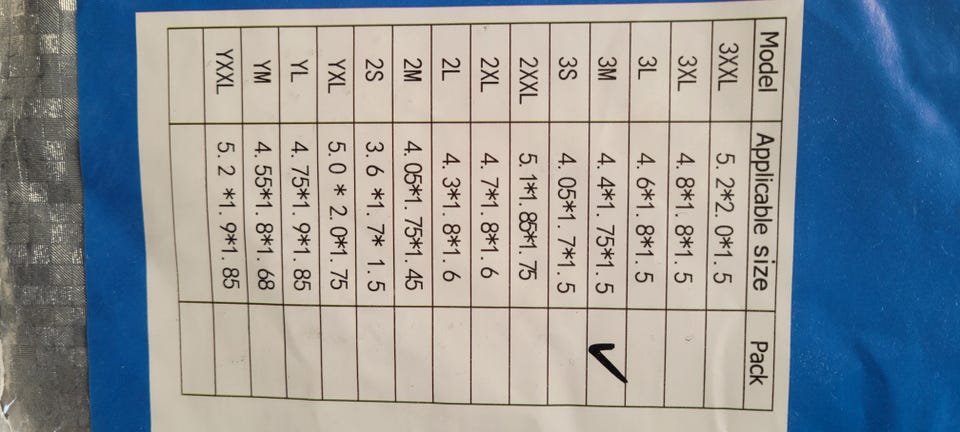 Model Applicable size Pack
3XXL 5. 2*2. 0*1. 5
3XL 4. 8*1. 8*1. 5
3L 4. 6*1. 8*1. 5
3M 4. 4*1. 75*1. 5 ✓
3S 4. 05*1. 7*1. 5
2XXL 5. 1*1. 85*1. 75
2XL 4. 7*1. 8*1. 6
2L 4. 3*1. 8*1. 6
2M 4. 05*1. 75*1. 45
2S 3. 6 *1. 7* 1. 5
YXL 5. 0 * 2. 0*1. 75
YL 4. 75*1. 9*1. 85
YM 4. 55*1. 8*1. 68
YXXL 5. 2 *1. 9*1. 85